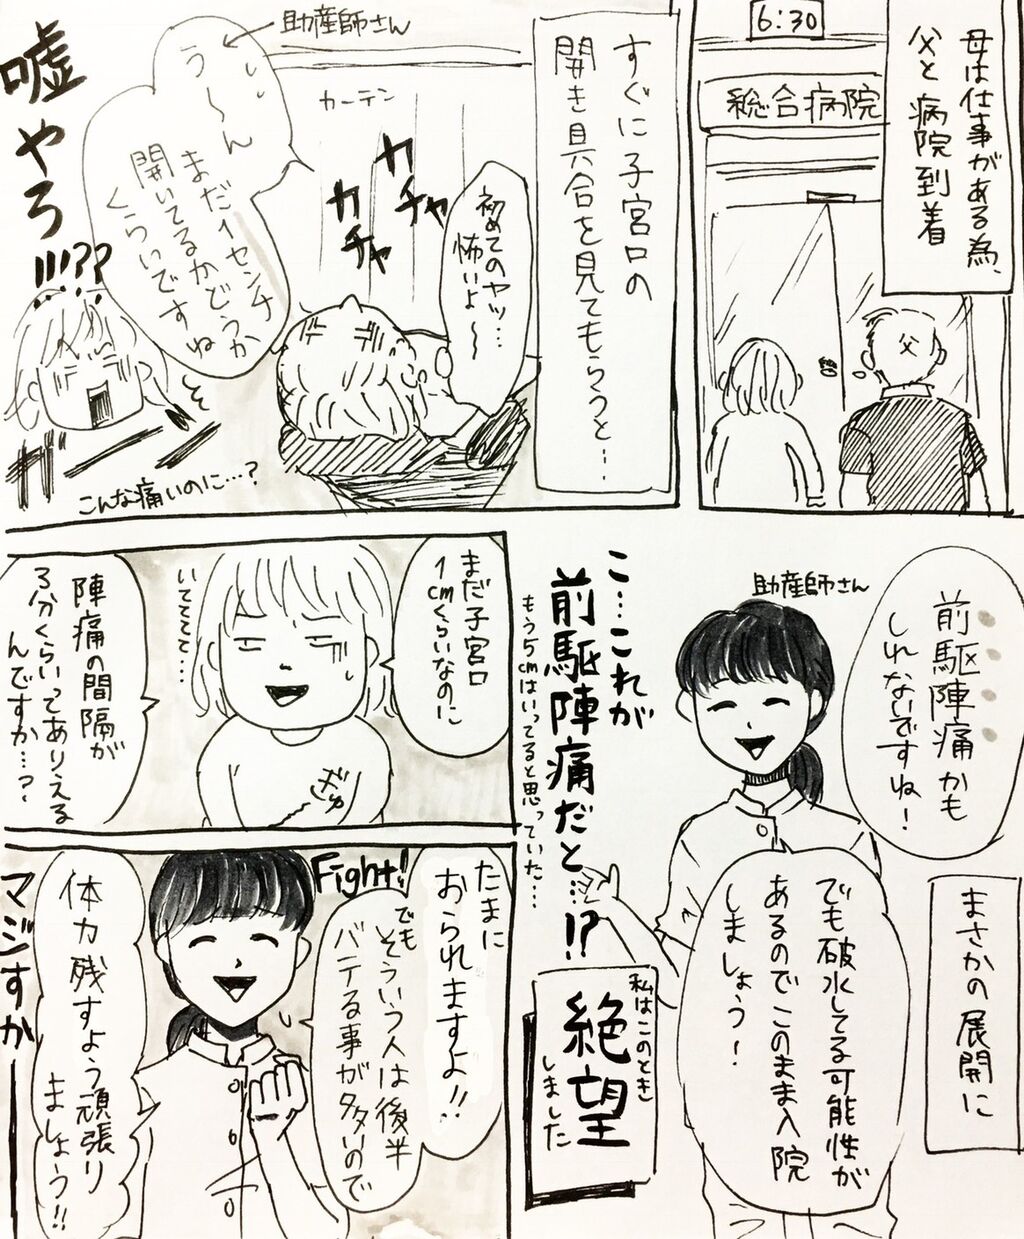 6:30
母は仕事がある為、
父と病院到着
総合病院
父
すぐに子宮口の
開き具合を見てもらうと…
初めてのヤツ…
怖いよ〜
カチャ
カチャ
カーテン
助産師さん
う〜ん
まだ1センチ
開いてるかどうか
くらいですね
嘘やろ!!!??
ガーン
こんな痛いのに…?
助産師さん
前駆陣痛かも
しれないですね!
まさかの展開に
でも破水してる可能性が
あるのでこのまま入院
しましょう!
こ…これが
前駆陣痛だと…!?
もう5cmはいってると思っていた…
私はこのとき
絶望
しました
まだ子宮口
1cmくらいなのに
いててて…
ぎゅ
陣痛の間隔が
3分くらいってありえる
んですか…?
たまに
おられますよ!!
Fight!
でも
そういう人は後半
バテる事が多いので
体力残すよう頑張り
ましょう!!
マジすかー